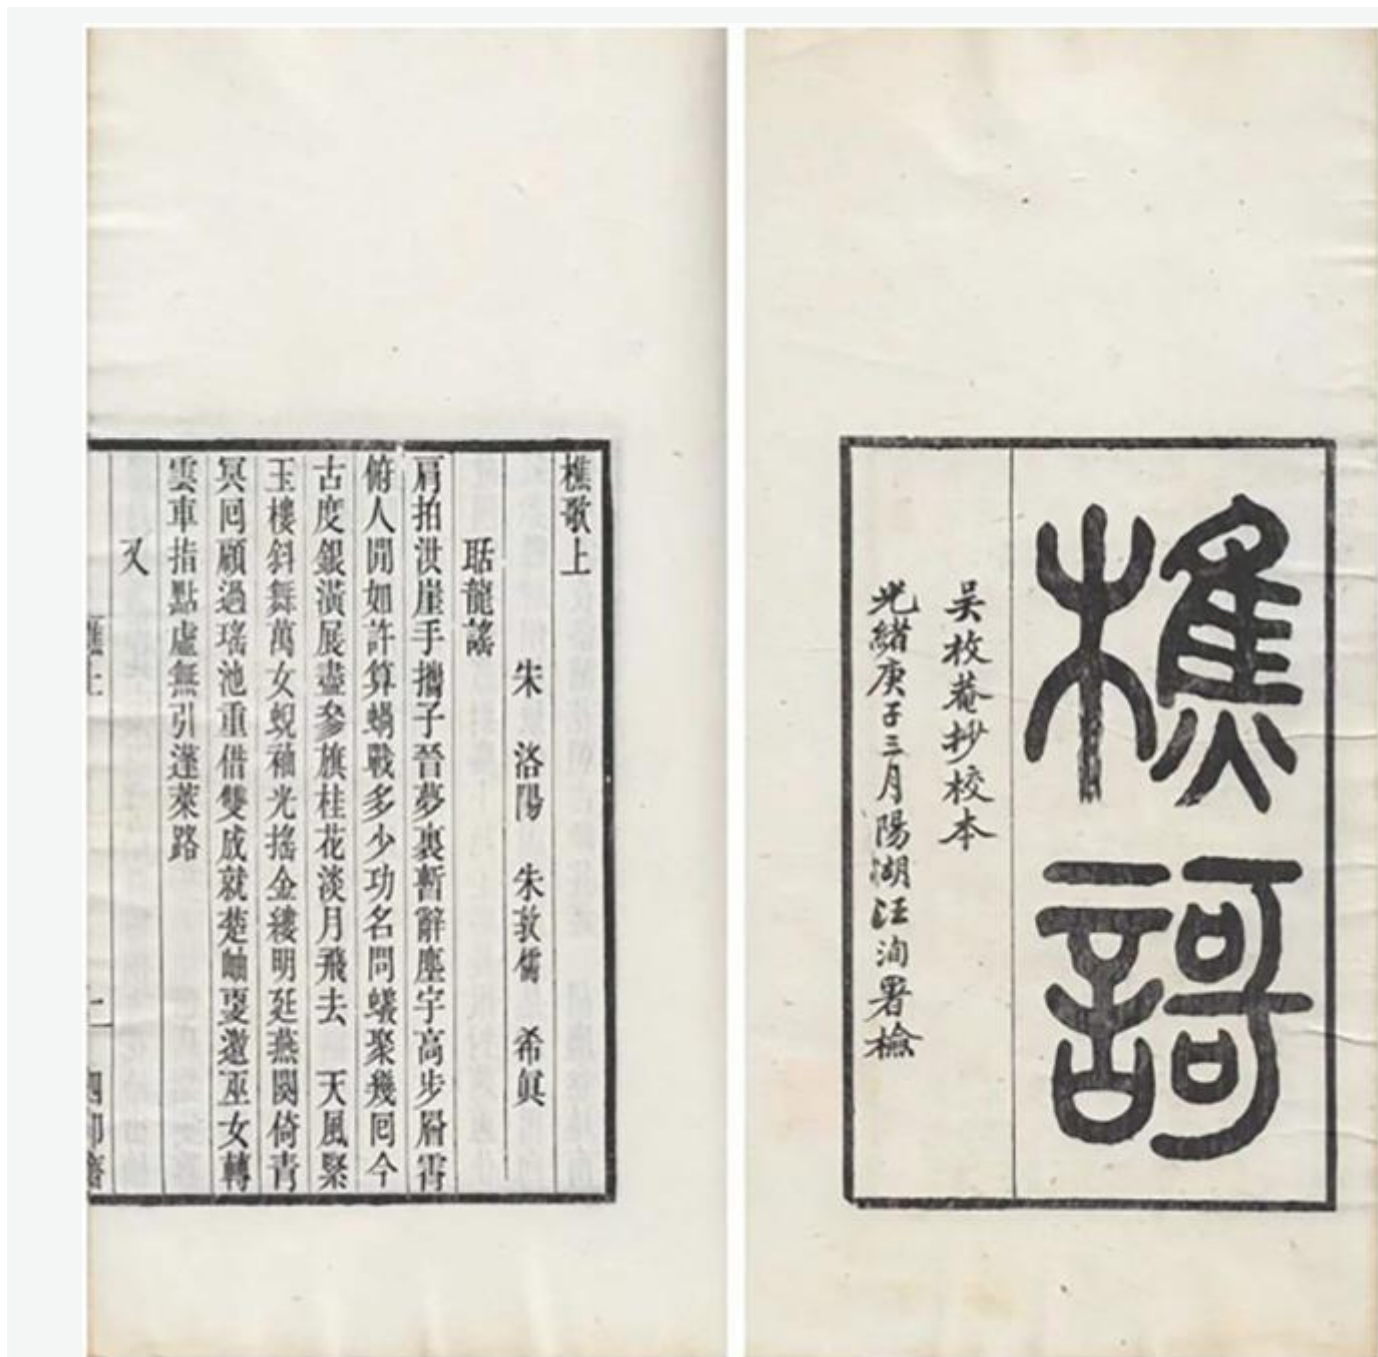 樵謌
吳枚菴抄校本
光緒庚子三月陽湖汪洵署檢
樵歌上
朱 洛陽 朱敦儒 希眞
聒龍謠
肩拍洪崖手攜子晉夢裏暫辭塵宇高步層霄
俯人間如許算蝸戰多少功名問蟻聚幾囘今
古度銀潢展盡參旗桂花淡月飛去 天風緊
玉樓斜舞萬女蜺袖光搖金縷明廷燕闋倚青
冥囘顧過瑤池重借雙成就楚岫更邀巫女轉
雲車指點虛無引蓬萊路
又